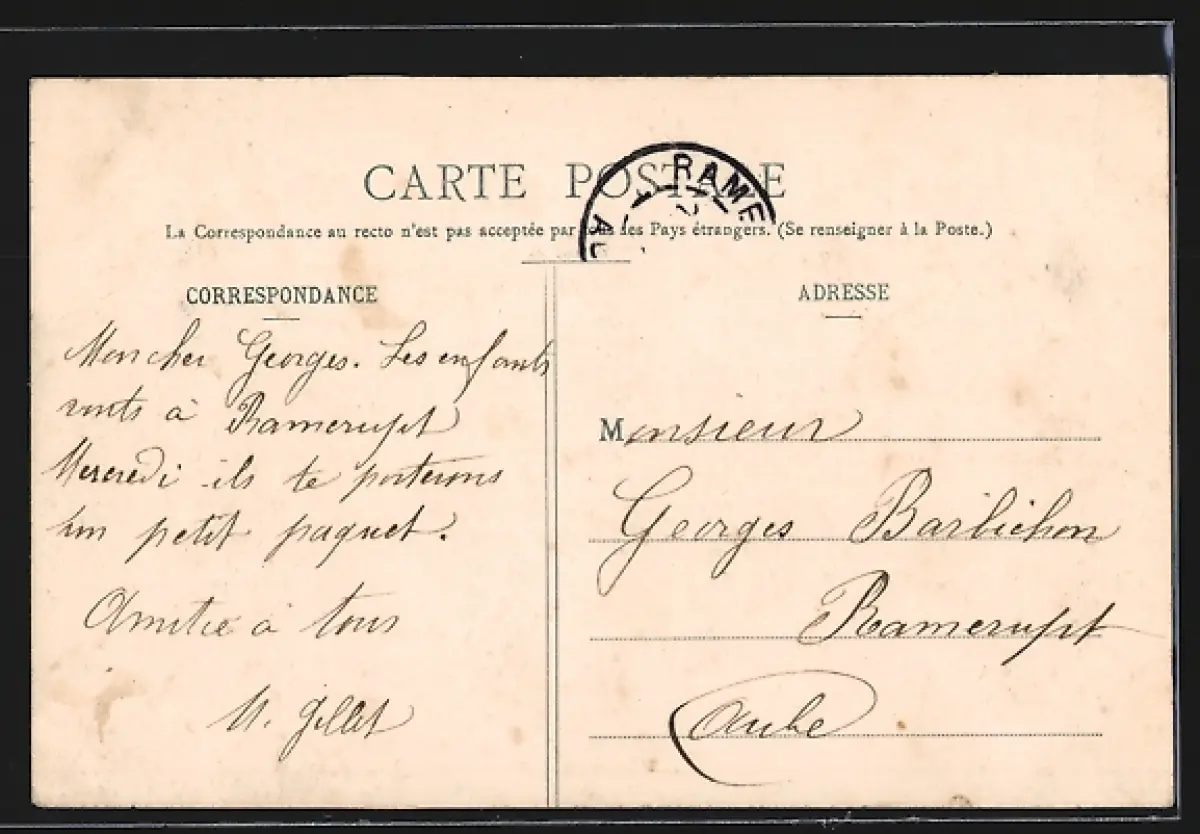 CARTE POSTALE
RAME
AU
La Correspondance au recto n'est pas acceptée par tous les Pays étrangers. (Se renseigner à la Poste.)
CORRESPONDANCE
Mon cher Georges. Les enfants
vonts à Ramerupt
Mercredi ils te porterons
un petit paquet.
Amitié à tous
M. Gillet
ADRESSE
Monsieur
Georges Barbichon
Ramerupt
Aube